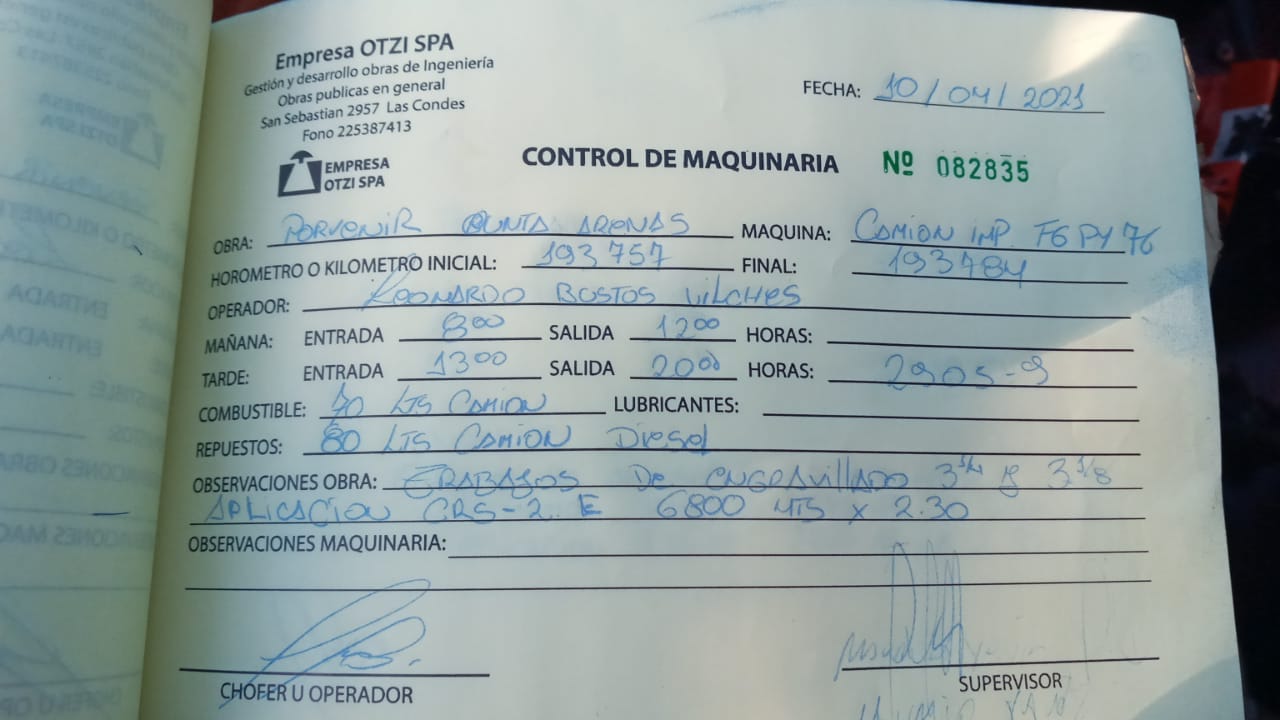 Empresa OTZI SPA
Gestión y desarrollo obras de Ingeniería
Obras publicas en general
San Sebastian 2957 Las Condes
Fono 225387413
EMPRESA
OTZI SPA
FECHA: 10/04/2021
CONTROL DE MAQUINARIA Nº 082835
OBRA: PORVENIR PUNTA ARENAS MAQUINA: CAMION IMP. FGPY 76
HOROMETRO O KILOMETRO INICIAL: 193757 FINAL: 193784
OPERADOR: LEONARDO BUSTOS VILCHES
MAÑANA: ENTRADA 800 SALIDA 1200 HORAS:
TARDE: ENTRADA 1300 SALIDA 2000 HORAS: 2905-9
COMBUSTIBLE: 70 LTS CAMION LUBRICANTES:
REPUESTOS: 80 LTS CAMION Diesel
OBSERVACIONES OBRA: TRABAJOS De ENGRAVILLADO 3/4 y 3/8
APLICACION CRS-2 E 6800 MTS x 2.30
OBSERVACIONES MAQUINARIA:
CHOFER U OPERADOR
SUPERVISOR